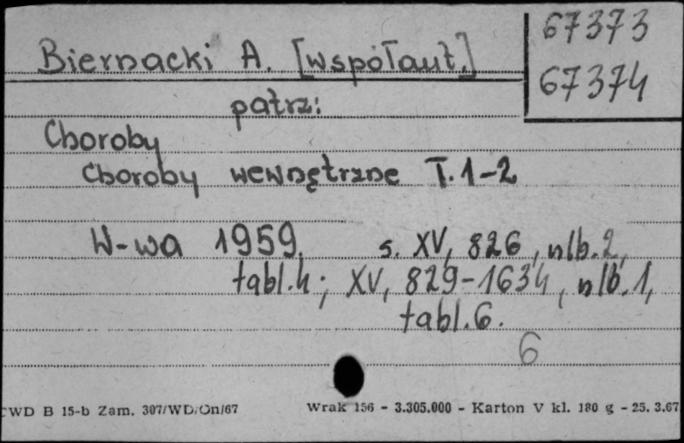 67373
Biernacki A. [współaut.]
67374
patrz:
Choroby
Choroby wewnętrzne T.1-2
W-wa 1959, s. XV, 826, nlb.2,
tabl.4; XV, 829-1634, nlb.1,
tabl.6.
6
CWD B 15-b Zam. 307/WD/On/67 Wrak 156 - 3.305.000 - Karton V kl. 180 g - 25. 3.67